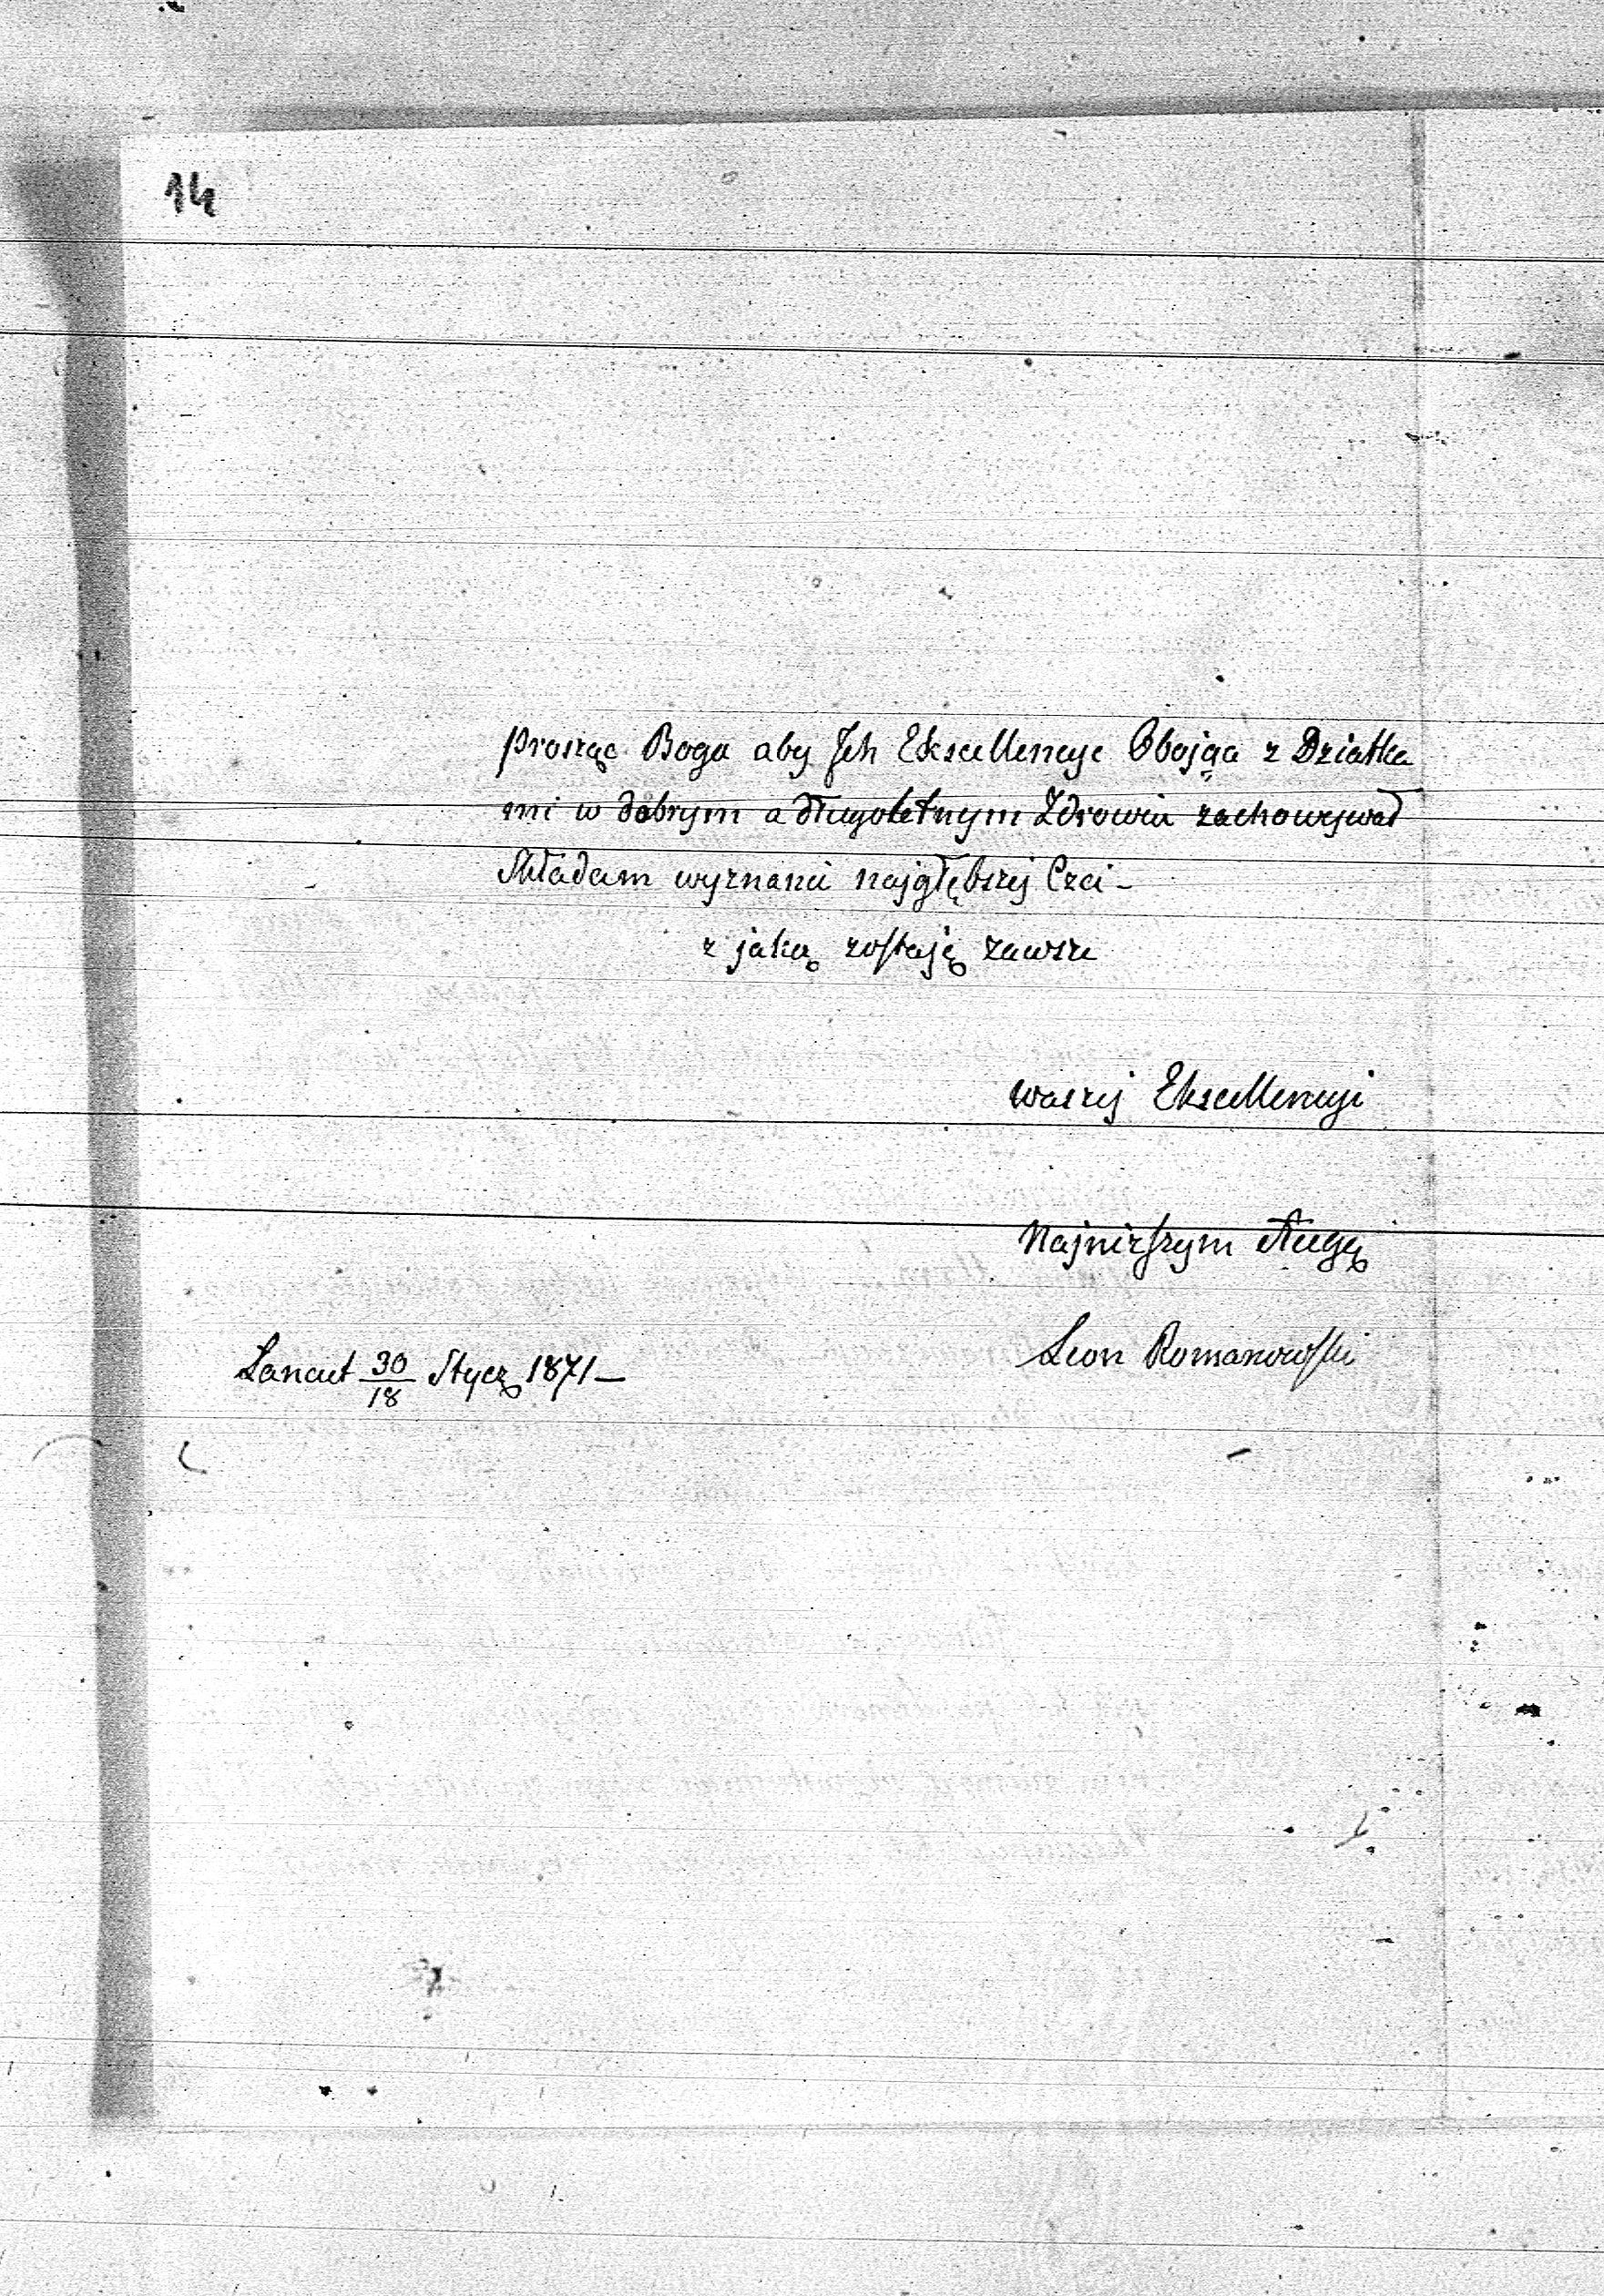 14
prosząc Boga aby Ich Ekscellencye Obojga z Dziatka
mi w dobrym a długoletnym Zdrowiu zachowywał
Składam wyznanie najgłębszej Czci -
z jaką zostaję zawsze
waszej Ekscellencyi
Najniższym sługą
Leon Romanowski
Lancut 30/18 Stycz 1871 -